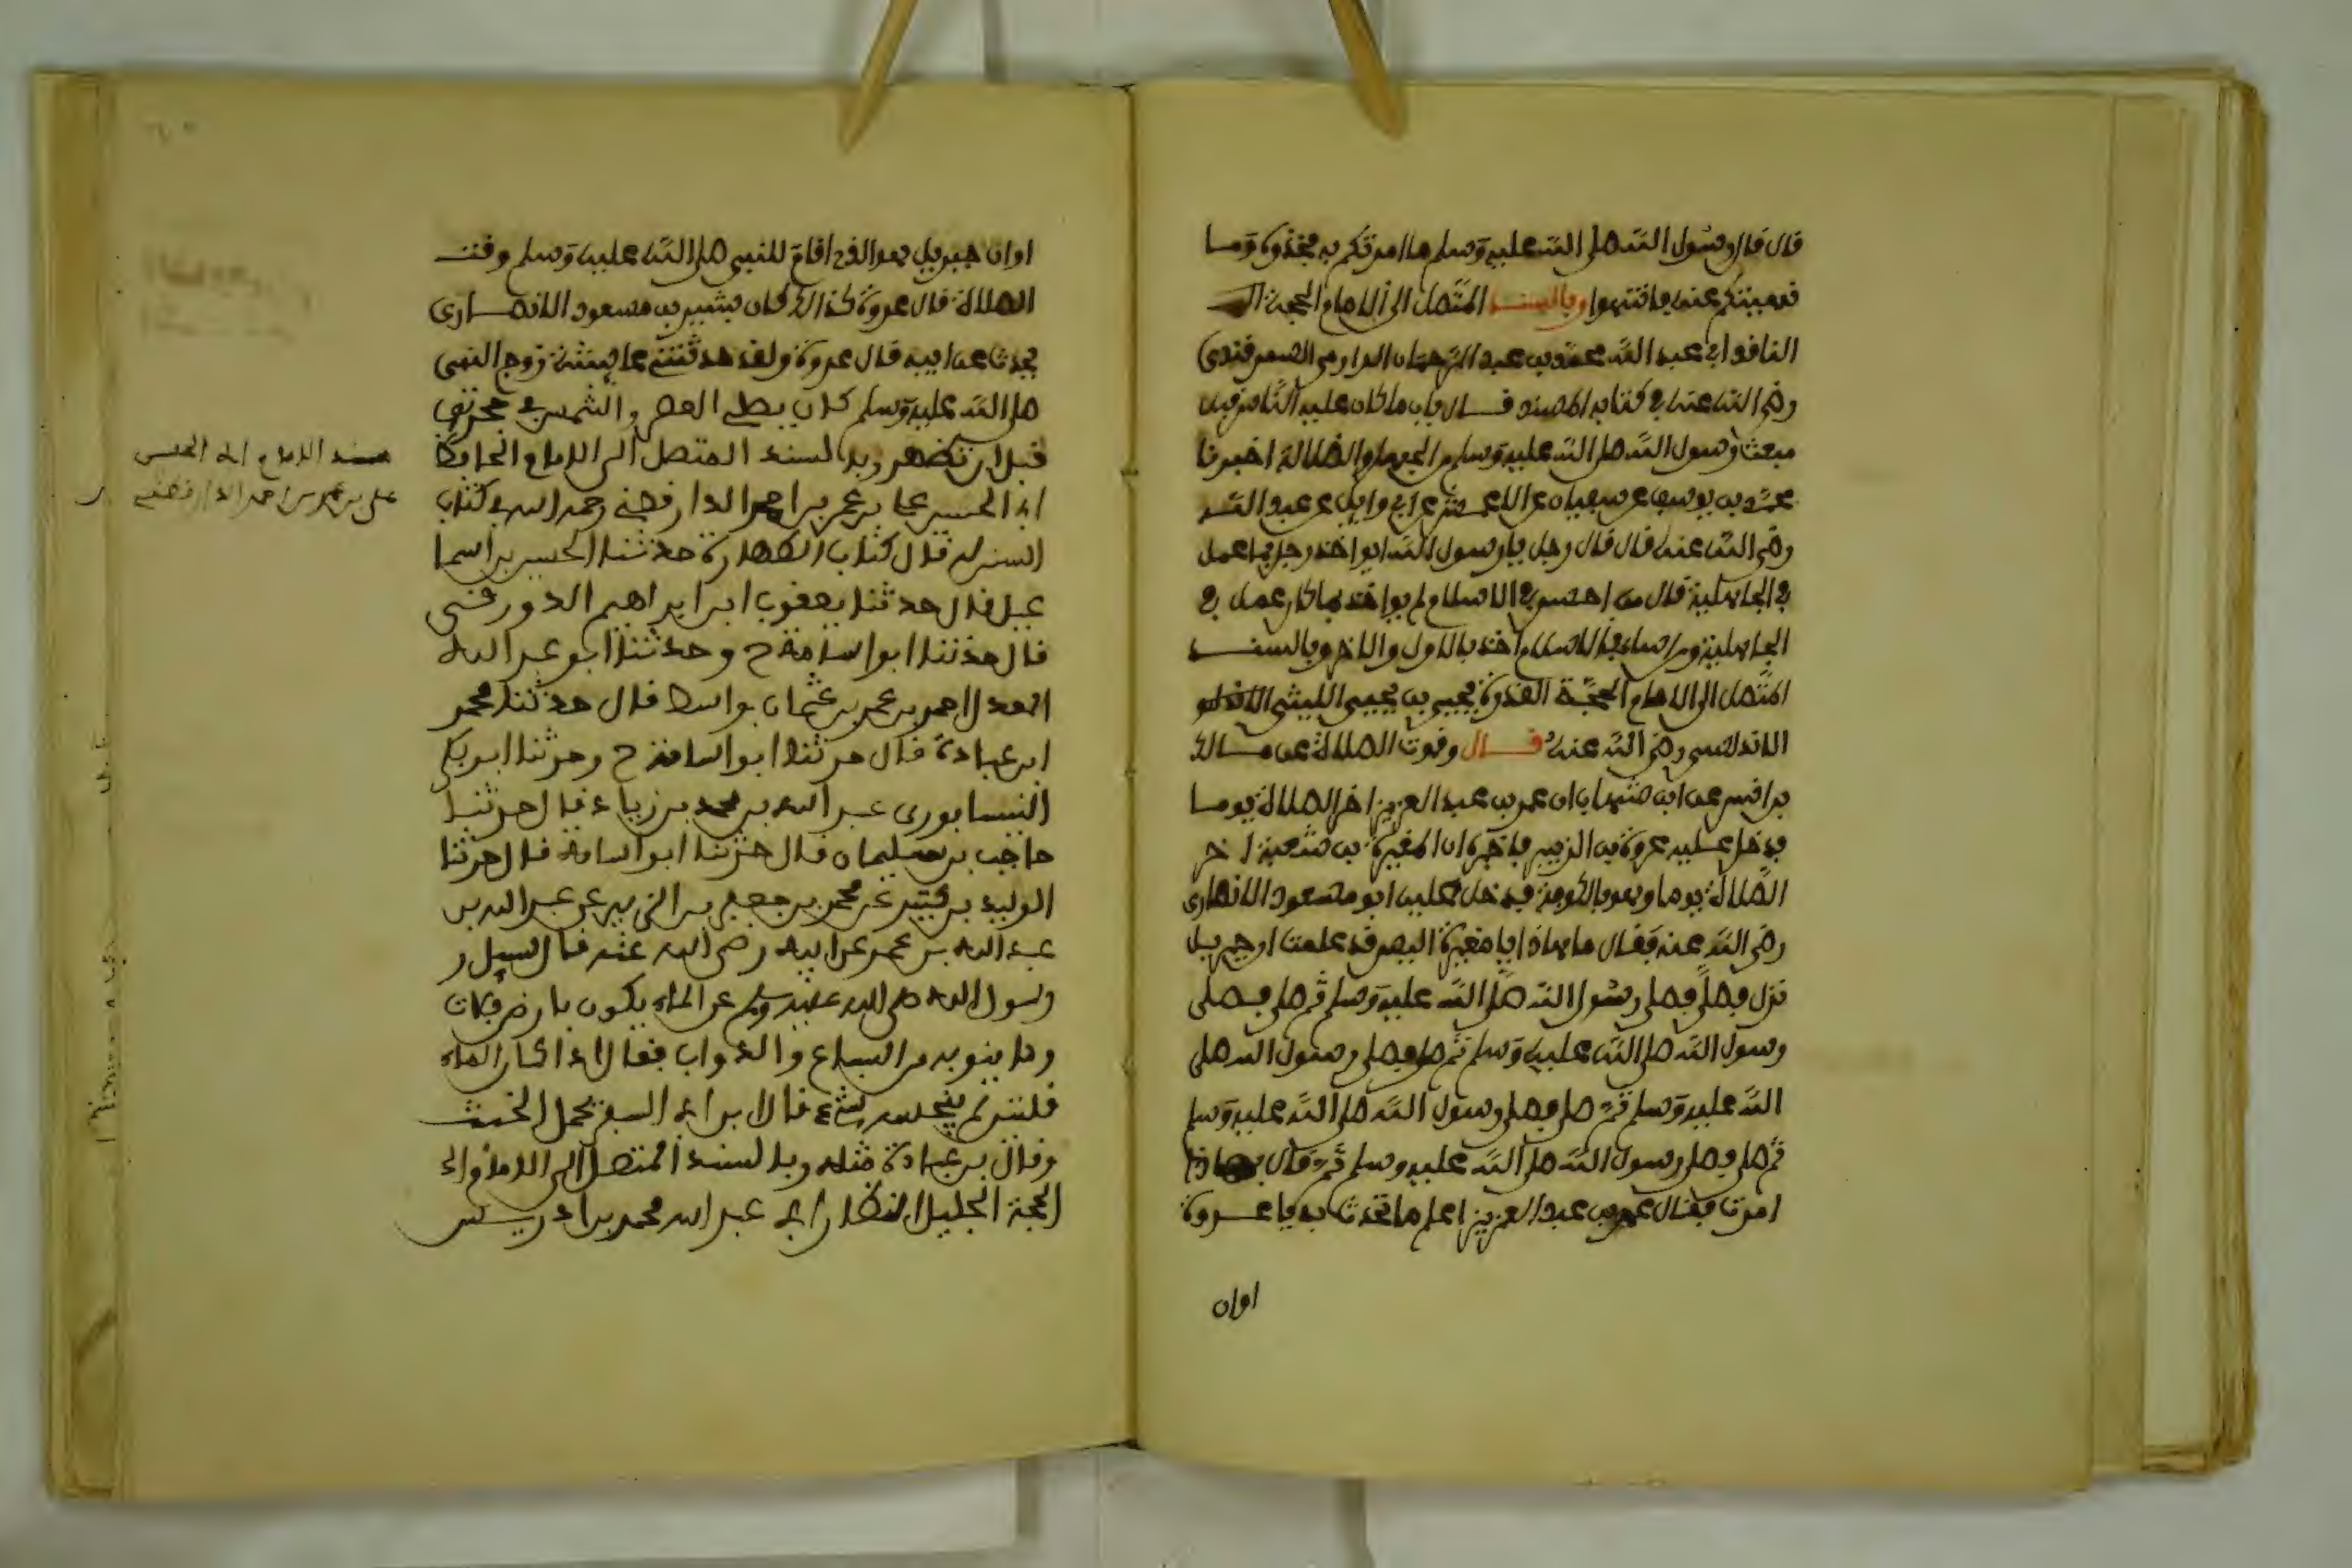 قال قال رسول الله صلى الله عليه وسلم ما امرتكم به فخذوه وما
نهيتكم عنه فانتهوا وبالسند المتصل الى الامام الحجة
الناقد ابي عبد الله محمد بن عبد الرحمان الدارمي السمرقندي
رضي الله عنه في كتابه المسند قال باب ما كان عليه الناس قبل
مبعث رسول الله صلى الله عليه وسلم من الجهل والضلالة اخبرنا
محمد بن يوسف عن سفيان عن الاعمش عن ابي وايل عن عبد الله
رضي الله عنه قال قال رجل يا رسول الله ايواخذ رجل بما عمل
في الجاهلية قال من احسن في الاسلام لم يواخذ بما كان عمل في
الجاهلية ومن اساء في الاسلام اخذ بالاول والاخر وبالسند
المتصل الى الامام الحجة القدوة يحيى بن يحيى الليثي
الاندلسي رضي الله عنه قال وقوت الصلاة عن مالك
بن انس عن ابن شهاب ان عمر بن عبد العزيز اخر الصلاة يوما
فدخل عليه عروة بن الزبير فاخبره ان المغيرة بن شعبة اخر
الصلاة يوما وهو بالكوفة فدخل عليه ابو مسعود الانصاري
رضي الله عنه فقال ما هاذا يا مغيرة اليس قد علمت ان جبريل
نزل فصلى فصلى رسول الله صلى الله عليه وسلم ثم صلى فصلى
رسول الله صلى الله عليه وسلم ثم صلى فصلى رسول الله صلى
الله عليه وسلم ثم صلى فصلى رسول الله صلى الله عليه وسلم
ثم صلى فصلى رسول الله صلى الله عليه وسلم ثم قال بهاذا
امرت فقال عمر بن عبد العزيز اعلم ما تحدث به يا عروة
اوان
اوان جبريل هو الذي اقام للنبي صلى الله عليه وسلم وقت
الصلاة قال عروة كذالك كان بشير بن مسعود الانصاري
يحدث عن ابيه قال عروة ولقد حدثتني عايشة زوج النبي
صلى الله عليه وسلم كان يصلي العصر والشمس في حجرتها
قبل ان تظهر وبالسند المتصل الى الامام الحافظ
ابي الحسن علي بن عمر بن احمد الدارقطني رحمه الله في كتاب
السنن قال كتاب الطهارة حدثنا الحسين بن اسما
عيل قال حدثنا يعقوب ابن ابراهيم الدورقي
قال حدثنا ابو اسامة ح وحدثنا ابو عبد الله
المعدل احمد بن عمر بن عثمان بواسط قال حدثنا محمد
ابن عبادة قال حدثنا ابو اسامة ح وحدثنا ابو بكر
النيسابوري عبد الله بن محمد بن زياد قال حدثنا
حاجب بن سليمان قال حدثنا ابو اسامة قال حدثنا
الوليد بن كثير عن محمد بن جعفر بن الزبير عن عبد الله بن
عبد الله بن عمر عن ابيه رضي الله عنه قال سيل ر
رسول الله صلى الله عليه وسلم عن الماء يكون بارض فلات
وما ينوبه من السباع والدواب فقال اذا كان الماء
قلتين لم ينجسه شيء قال ابن ابي السفر يحمل الخبث
وقال بن عبادة مثله وبالسند المتصل الى الامام
الحجة الجليل النظار ابي عبد الله محمد بن ادريس
مسند الامام ابي الحسن
علي بن عمر بن احمد الدارقطني